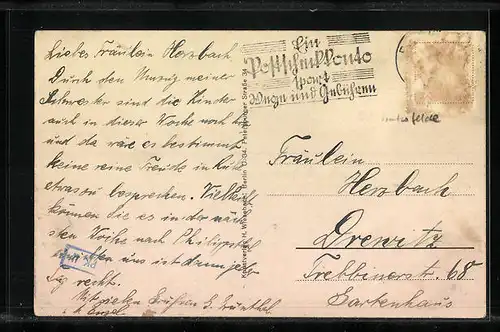 Liebes Fräulein Herzbach
Durch den Umzug meiner
Schwester sind die Kinder
auch in dieser Woche noch
und da wäre es bestimmt
keine reine Freude in Ruhe
etwas zu besprechen. Vielleicht
können Sie es in der näch-
sten Woche nach
uns ist dann jeder
Tag recht.
Mit vielen Grüßen E.
Ein
Postscheckkonto
spart
Wege und Gebühren
Berlin
Straße 34
Fräulein
Herzbach
Drewitz
Trebbinerst. 68
Gartenhaus